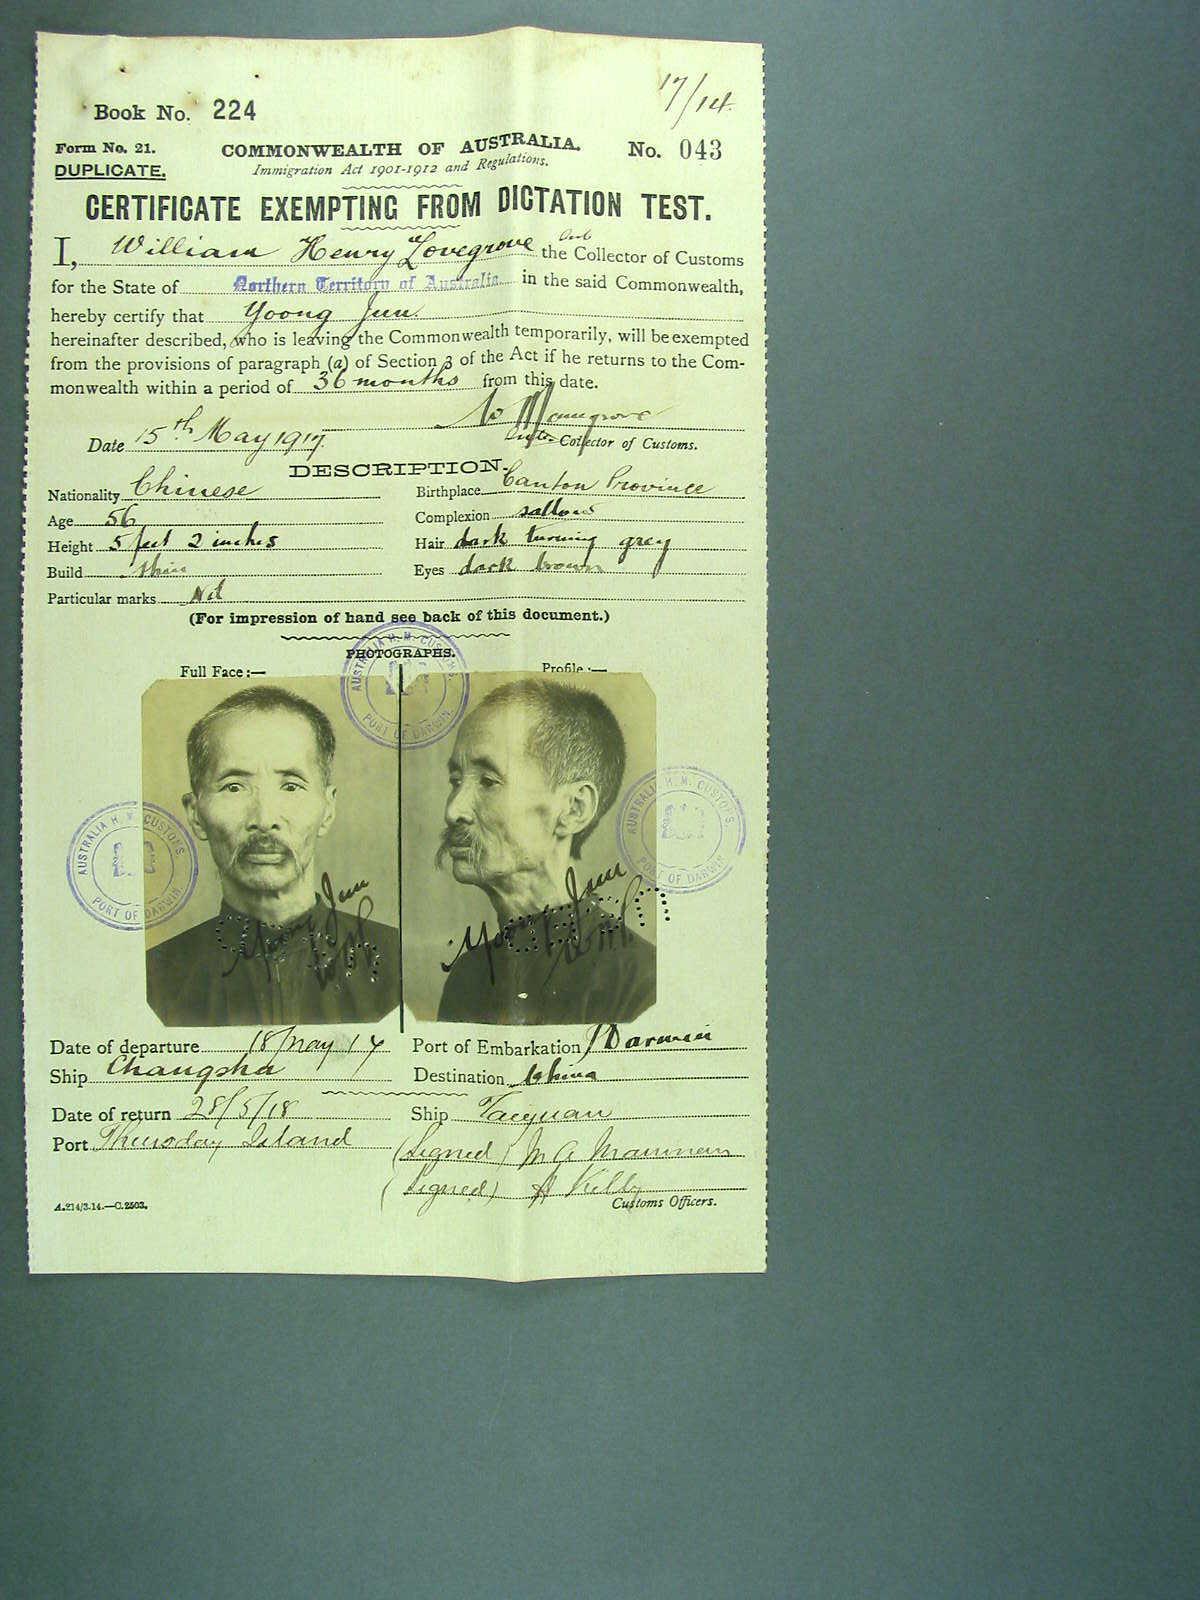 17/14.
Book No. 224
Form No. 21.
COMMONWEALTH OF AUSTRALIA.
No. 043
DUPLICATE.
Immigration Act 1901-1912 and Regulations.
CERTIFICATE EXEMPTING FROM DICTATION TEST.
I, William Henry Lovegrove the Collector of Customs
for the State of Northern Territory of Australia in the said Commonwealth,
hereby certify that Yoong Jun
hereinafter described, who is leaving the Commonwealth temporarily, will be exempted
from the provisions of paragraph (a) of Section 3 of the Act if he returns to the Com-
monwealth within a period of 36 months from this date.
Date 15th May 1917.
Collector of Customs.
DESCRIPTION.
Nationality Chinese
Birthplace Canton Province
Age 56
Complexion sallow
Height 5 feet 2 inches
Hair dark turning grey
Build thin
Eyes dark brown
Particular marks Nil
(For impression of hand see back of this document.)
PHOTOGRAPHS.
Full Face:—
Profile:—
AUSTRALIA H. M. CUSTOMS.
PORT OF DARWIN.
AUSTRALIA H. M. CUSTOMS.
PORT OF DARWIN.
AUSTRALIA H. M. CUSTOMS.
PORT OF DARWIN.
Yoong Jun
Yoong Jun
Date of departure 18 May 17
Port of Embarkation Darwin
Ship Changsha
Destination China
Date of return 28/5/18
Ship Taiyuan
Port Thursday Island
(Signed)
(Signed) H Kelly
Customs Officers.
A.214/3.14.—C.2503.